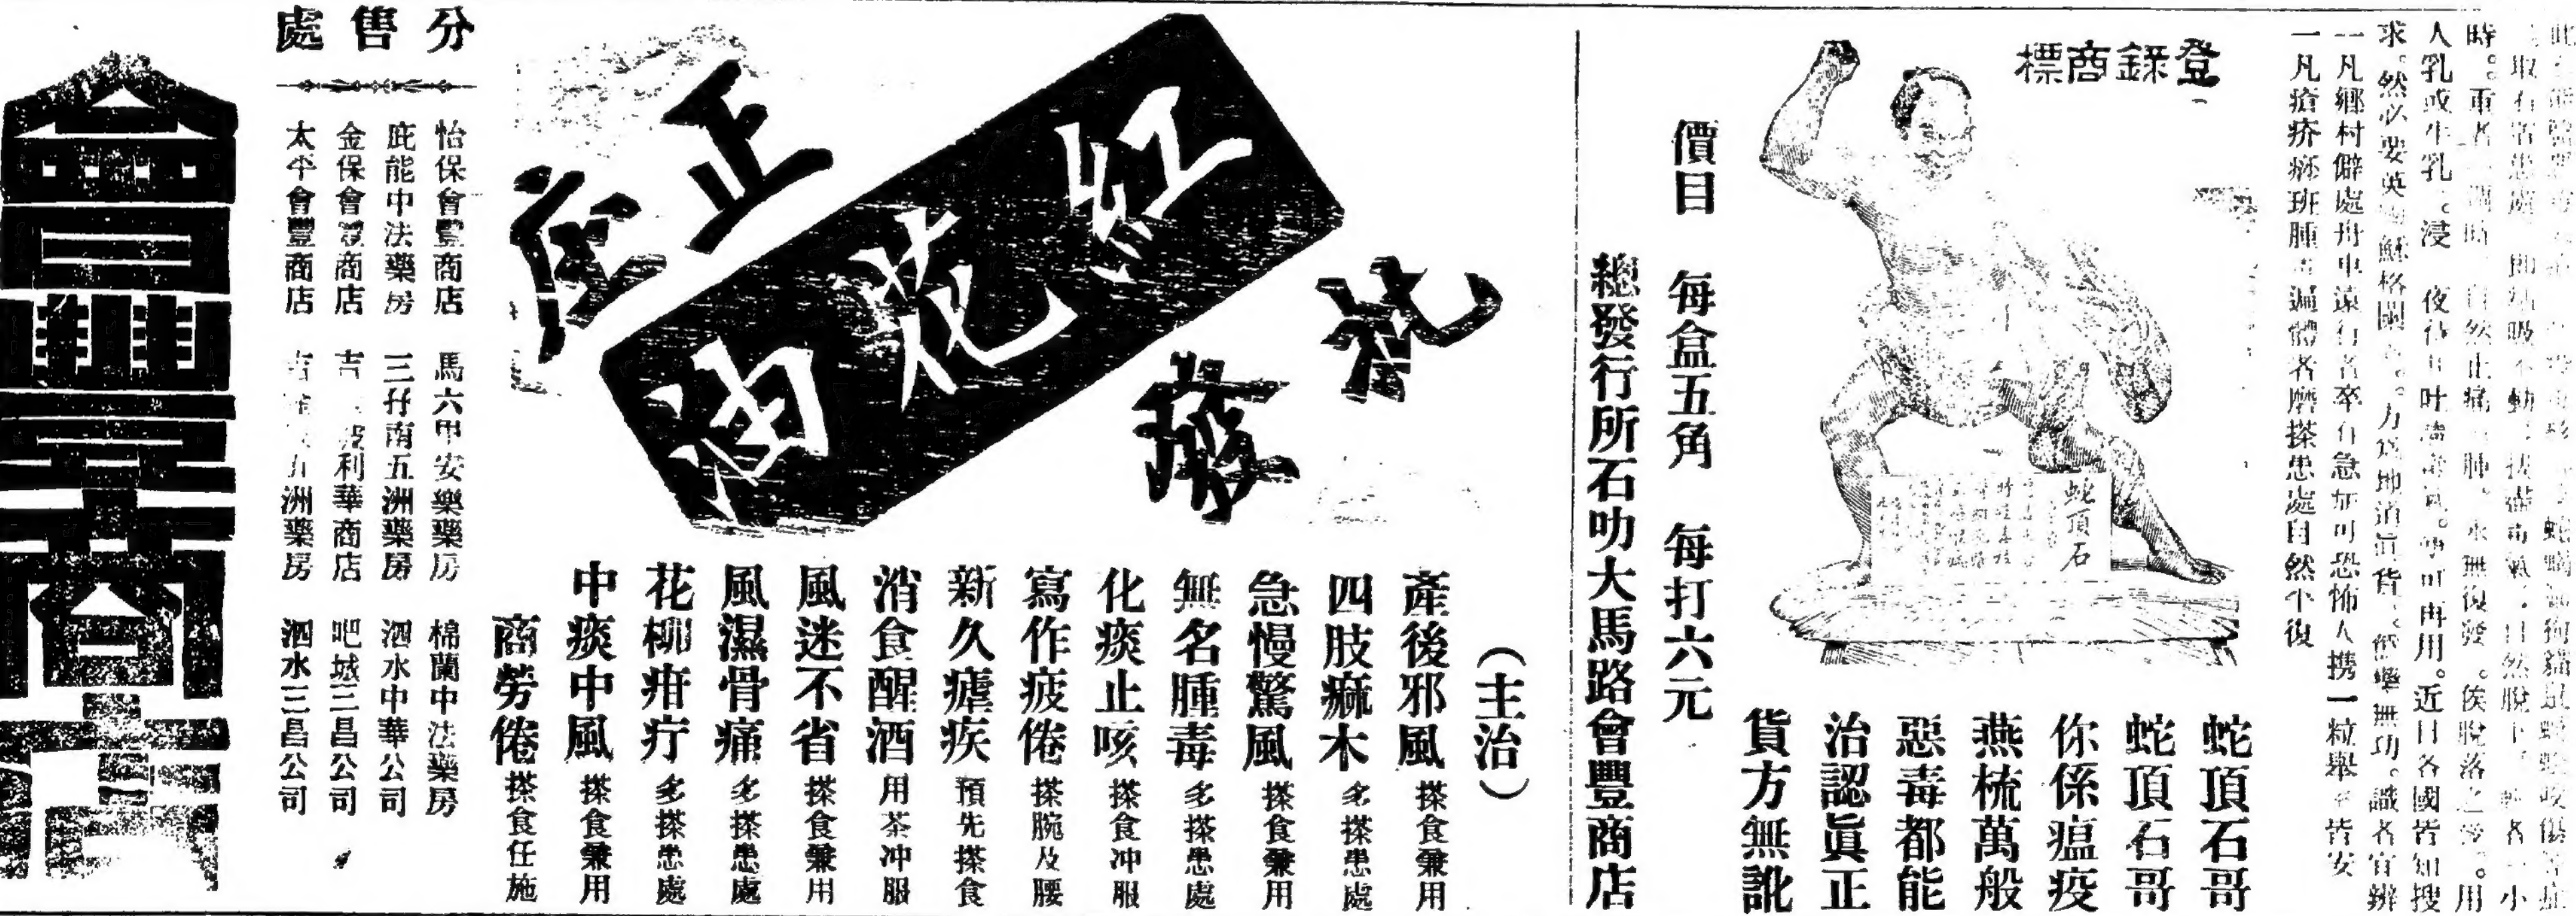 蛇蝎 狗貓鼠 咬傷等症
取石 患處 即粘吸不動 拔盡毒氣。自然脫下。輕者一小
時。重者 自然止痛 腫。永無復發。俟脫落之後。用
人乳或牛乳。浸 夜待其吐 毒氣。仍可再用。近日各國皆知搜
求。然必要英 蘇格蘭 方為地道眞貨。無功。識者宜辨
一凡鄉村僻處舟車遠行者卒有急症可恐怖人携一粒舉 皆安
一凡瘡疥 班腫毒遍體者磨搽患處自然平復
登錄商標
蛇頂石
蛇頂石哥
蛇頂石哥
你係瘟疫
燕梳萬般
惡毒都能
治認眞正
貨方無訛
價目 每盒五角 每打六元
總發行所石叻大馬路會豐商店
批發
紅花油
正庄
（主治）
產後邪風 搽食兼用
四肢痲木 多搽患處
急慢驚風 搽食兼用
無名腫毒 多搽患處
化痰止咳 搽食冲服
寫作疲倦 搽腕及腰
新久瘧疾 預先搽食
消食醒酒 用茶冲服
風迷不省 搽食兼用
風濕骨痛 多搽患處
花柳疳疔 多搽患處
中痰中風 搽食兼用
商勞倦 搽食任施
分售處
怡保會豐商店 馬六甲安樂藥房 棉蘭中法藥房
庇能中法藥房 三孖南五洲藥房 泗水中華公司
金保會豐商店 吉 玻利華商店 吧城三昌公司
太平會豐商店 吉 五洲藥房 泗水三昌公司
會豐商店